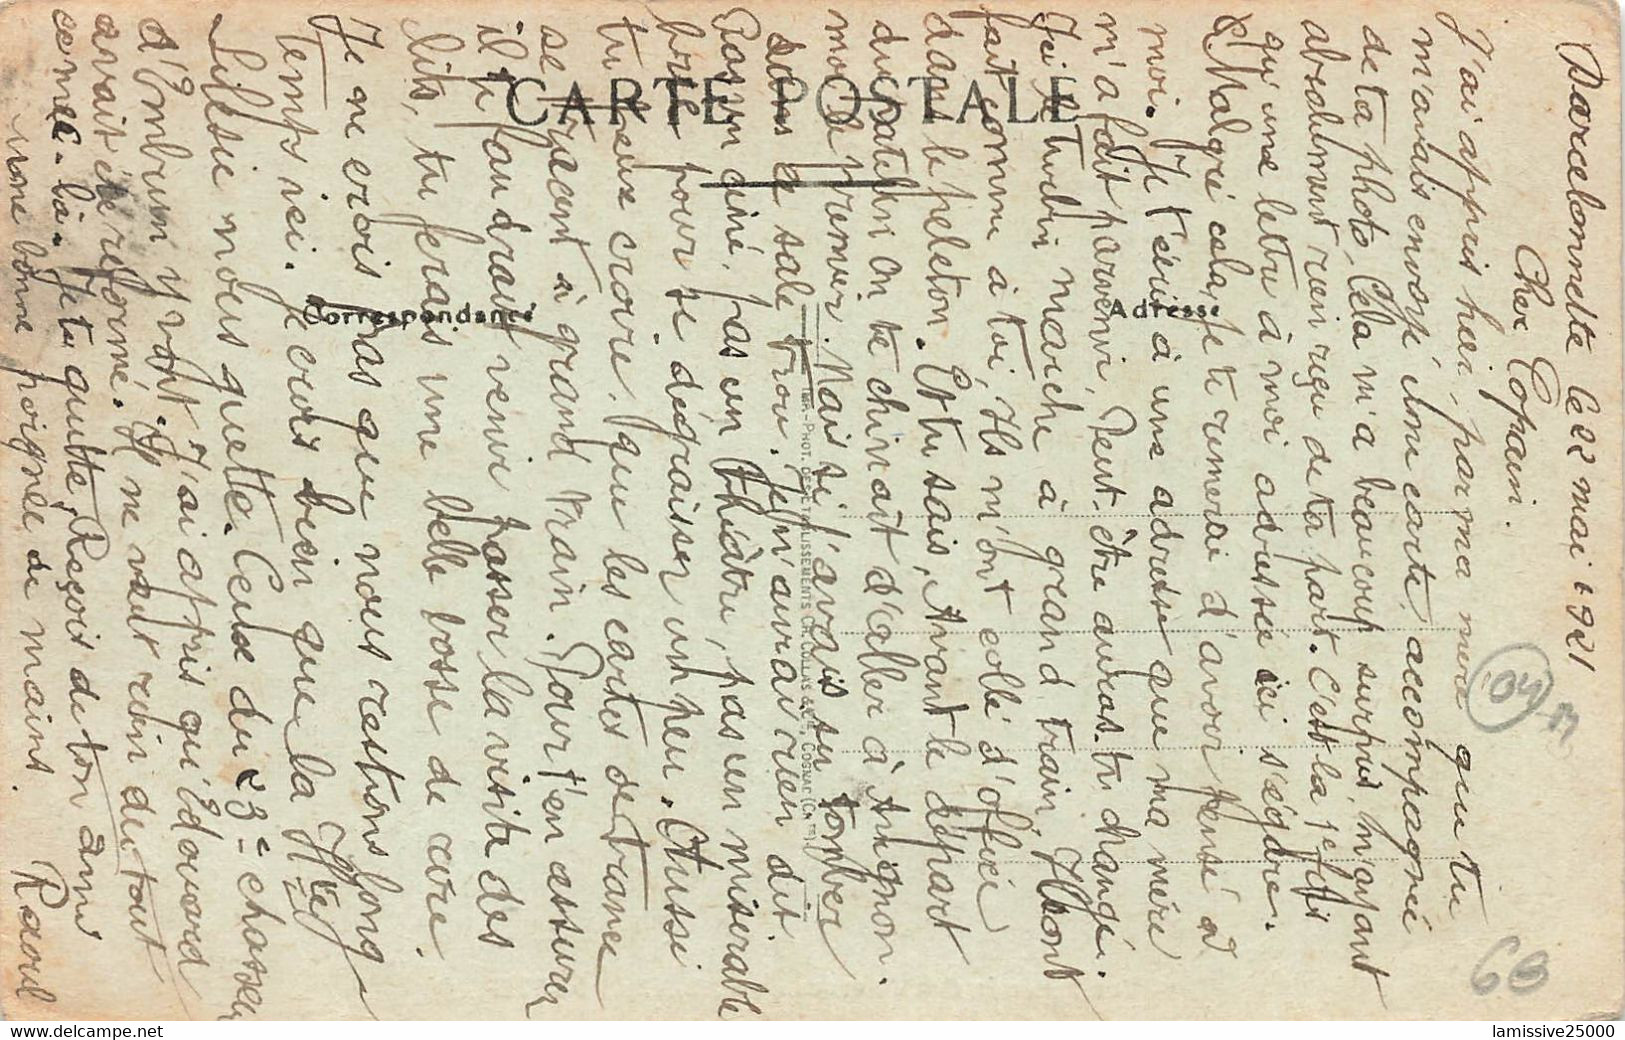 Barcelonnette le 22 mai 1921
Cher Copain.
J'ai appris hier, par ma mère que tu
m'avais envoyé une carte, accompagné
de ta photo, Cela m'a beaucoup surpris, n'ayant
absolument rien reçu de ta part. C'est la 1e fois
qu'une lettre à moi adressée ici s'égare.
Malgré cela, je te remercie d'avoir pensé à
moi. Je t'écris à une adresse que ma mère
m'a fait parvenir, Peut-être auras-tu changé.
Ici le turbin marche à grand train, Ils ont
fait comme à toi, Ils m'ont collé d'office
dans le peleton. Et tu sais, Avant le départ
du bataillon on te chinait d'aller à Avignon.
moi le premier. Mais si j'avais su tomber
dans ce sale trou. Je n'aurai rien dit
Pas un ciné, pas un théâtre, pas un misérable
pour se dégraisser un peu. Aussi
tu peux croire que les cartes de tranes
se tracent à grand train. Pour t'en assurer
il te faudrait venir passer la visite des
lits, tu ferais une belle bosse de rire.
Je ne crois pas que nous restions long-
temps ici. Je crois bien que la Hte
Silésie nous guette. Ceux du 23e chasseur
d'Embrun y vont. J'ai appris qu'Edouard
avait été réformé. Il ne vaut rien du tout
ce mec-là. Je te quitte, Reçois de ton ami
une bonne poignée de mains.
Raoul
CARTE POSTALE
Correspondance
Adresse
IMP.-PHOT. DES ETABLISSEMENTS CH. COLLAS & Cie, COGNAC (Cte)
04
68
lamissive25000